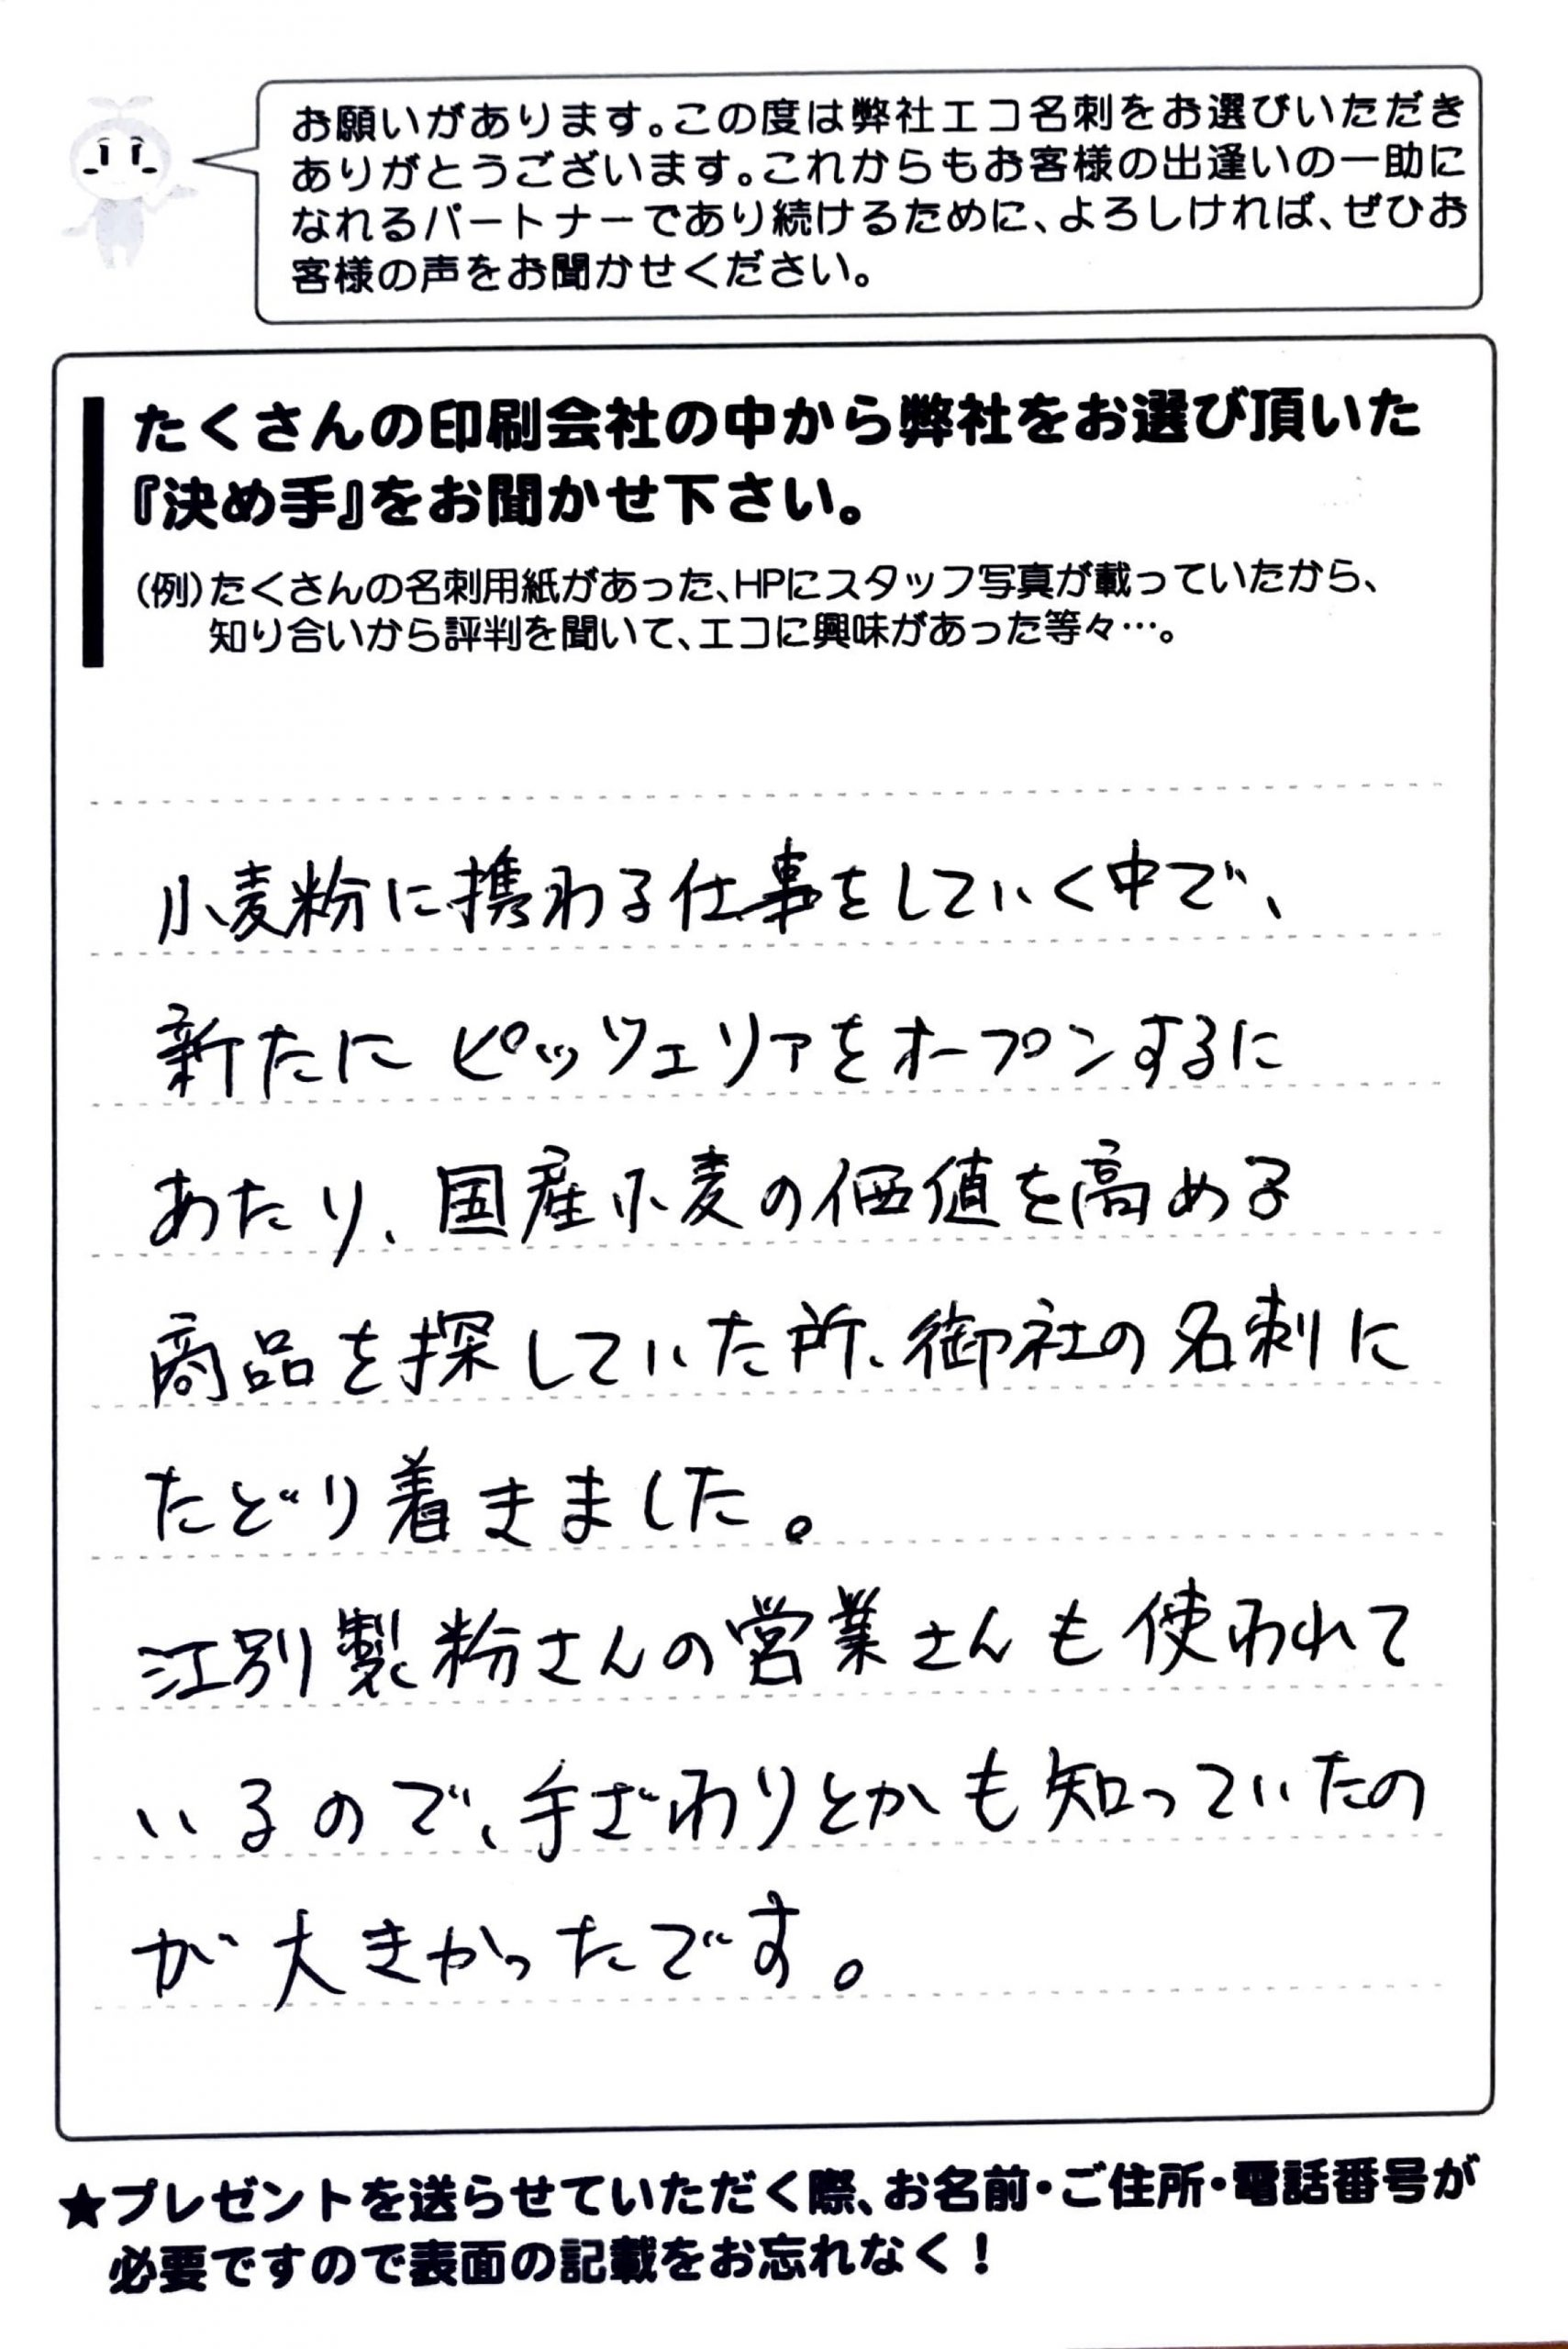 お願いがあります。この度は弊社エコ名刺をお選びいただき
ありがとうございます。これからもお客様の出逢いの一助に
なれるパートナーであり続けるために、よろしければ、ぜひお
客様の声をお聞かせください。
たくさんの印刷会社の中から弊社をお選び頂いた
『決め手』をお聞かせ下さい。
(例)たくさんの名刺用紙があった、HPにスタッフ写真が載っていたから、
知り合いから評判を聞いて、エコに興味があった等々…。
小麦粉に携わる仕事をしていく中で、
新たにピッツェリアをオープンするに
あたり、国産小麦の価値を高める
商品を探していた所、御社の名刺に
たどり着きました。
江別製粉さんの営業さんも使われて
いるので、手ざわりとかも知っていたの
が大きかったです。
★プレゼントを送らせていただく際、お名前・ご住所・電話番号が
必要ですので表面の記載をお忘れなく！